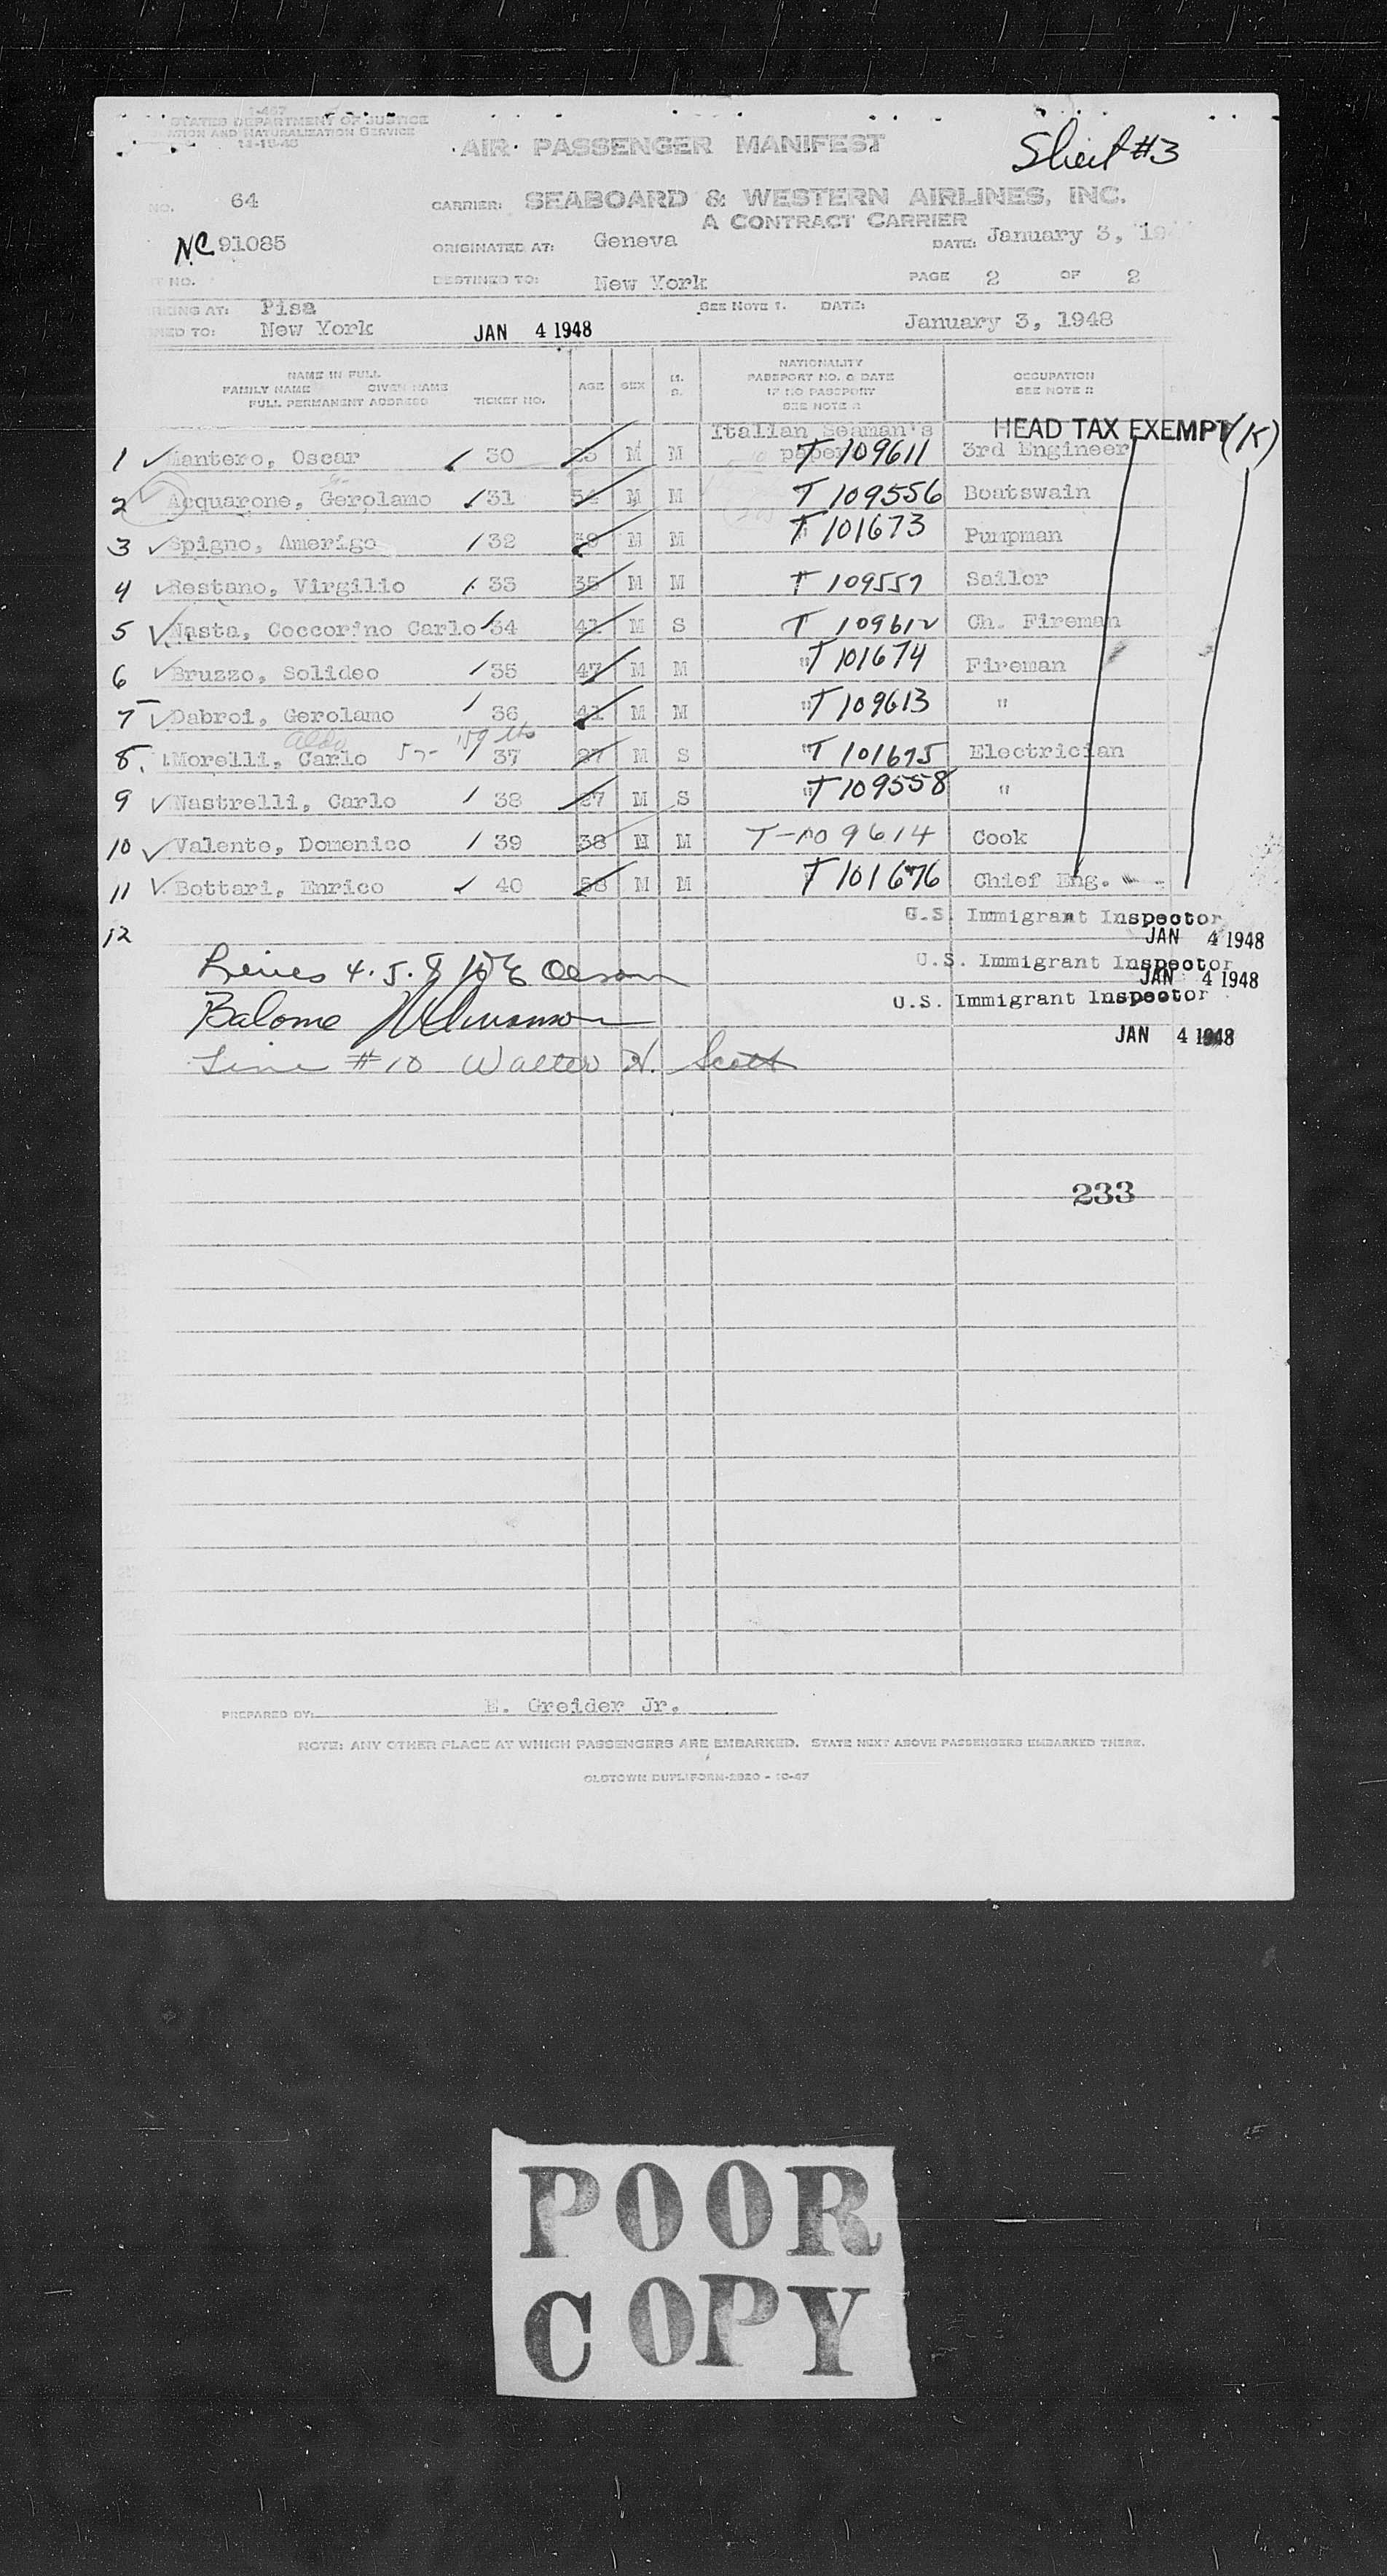 I-467
STATES DEPARTMENT OF JUSTICE
AND NATURALIZATION SERVICE
AIR PASSENGER MANIFEST
Sheet #3
NO. 64 CARRIER: SEABOARD & WESTERN AIRLINES, INC.
A CONTRACT CARRIER
NC 91085 ORIGINATED AT: Geneva DATE: January 3, 19
NO. DESTINED TO: New York PAGE 2 OF 2
AT: Pisa SEE NOTE 1. DATE:
TO: New York JAN 4 1948 January 3, 1948
NAME IN FULL
FAMILY NAME GIVEN NAME
FULL PERMANENT ADDRESS TICKET NO. AGE SEX M. S. NATIONALITY PASSPORT NO. & DATE IF NO PASSPORT SEE NOTE 2 OCCUPATION SEE NOTE 2
Italian Seaman's HEAD TAX EXEMPT (K)
1 Mantero, Oscar 30 M M paper T 109611 3rd Engineer
2 Acquarone, Gerolamo 31 54 M M T 109556 Boatswain
3 Spigno, Amerigo 32 39 M M T 101673 Pumpman
4 Restano, Virgilio 33 35 M M T 109557 Sailor
5 Nasta, Coccorino Carlo 34 41 M S T 109612 Ch. Fireman
6 Bruzzo, Solideo 35 47 M M " T 101674 Fireman
7 Dabroi, Gerolamo 36 41 M M " T 109613 "
Aldo 159 lbs
8. Morelli, Carlo 37 27 M S " T 101675 Electrician
9 Nastrelli, Carlo 38 27 M S " T 109558 "
10 Valente, Domenico 39 38 M M T-109614 Cook
11 Bottari, Enrico 40 58 M M T 101676 Chief Eng.
U.S. Immigrant Inspector
12 JAN 4 1948
Lines 4. 5. 8 Olson
U.S. Immigrant Inspector
JAN 4 1948
U.S. Immigrant Inspector
Balome
JAN 4 1948
Line #10 Walter H. Scott
233
PREPARED BY: E. Greider Jr.
NOTE: ANY OTHER PLACE AT WHICH PASSENGERS ARE EMBARKED. STATE NEXT ABOVE PASSENGERS EMBARKED THERE.
OLDTOWN DUPLIFORM-2820 - 10-47
POOR
COPY